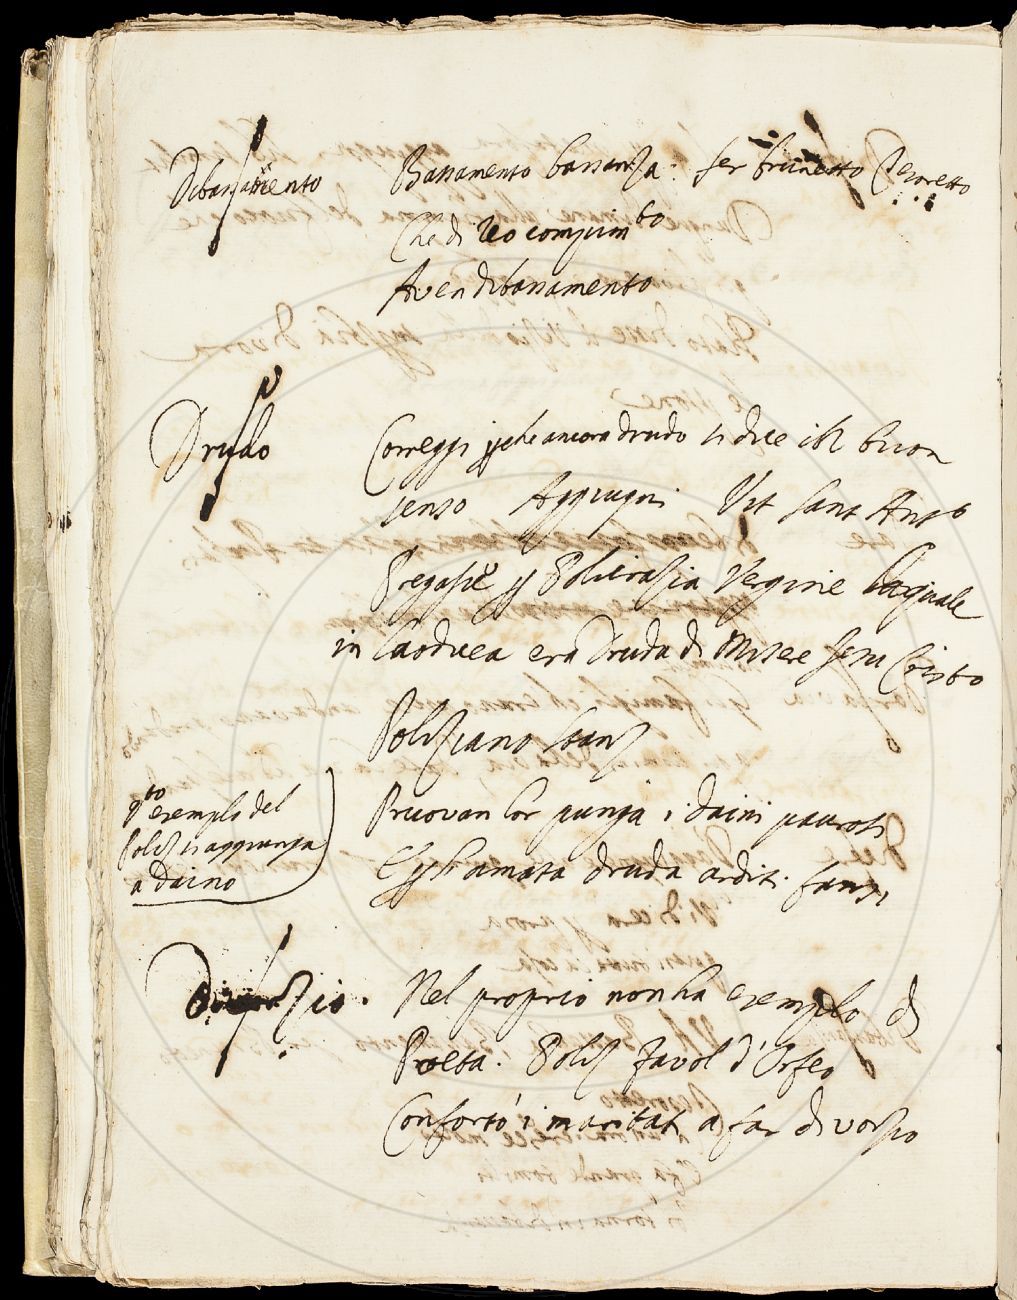 Dibassamento Bassamento bassanza. Ser Brunetto Tesoretto
Che di reo compimto
Aven dibassamento
Drudo Correggi perche ancora drudo si dice in buon
senso Aggiugni Vit Sant Anto
Pregasse per Policrazia Vergine laquale
in Laodicea era Druda di Misere Jesu Cristo
Poliziano Stanz
qto exemplo del
Poliz si aggiunga
a Daino
Pruovan lor punga i daini paurosi
E per l'amata druda arditi fansi
Divorzio. Nel proprio non ha exemplo di
Poeta. Poliz Favol d'Orfeo
Conforto i maritati a far divorzio